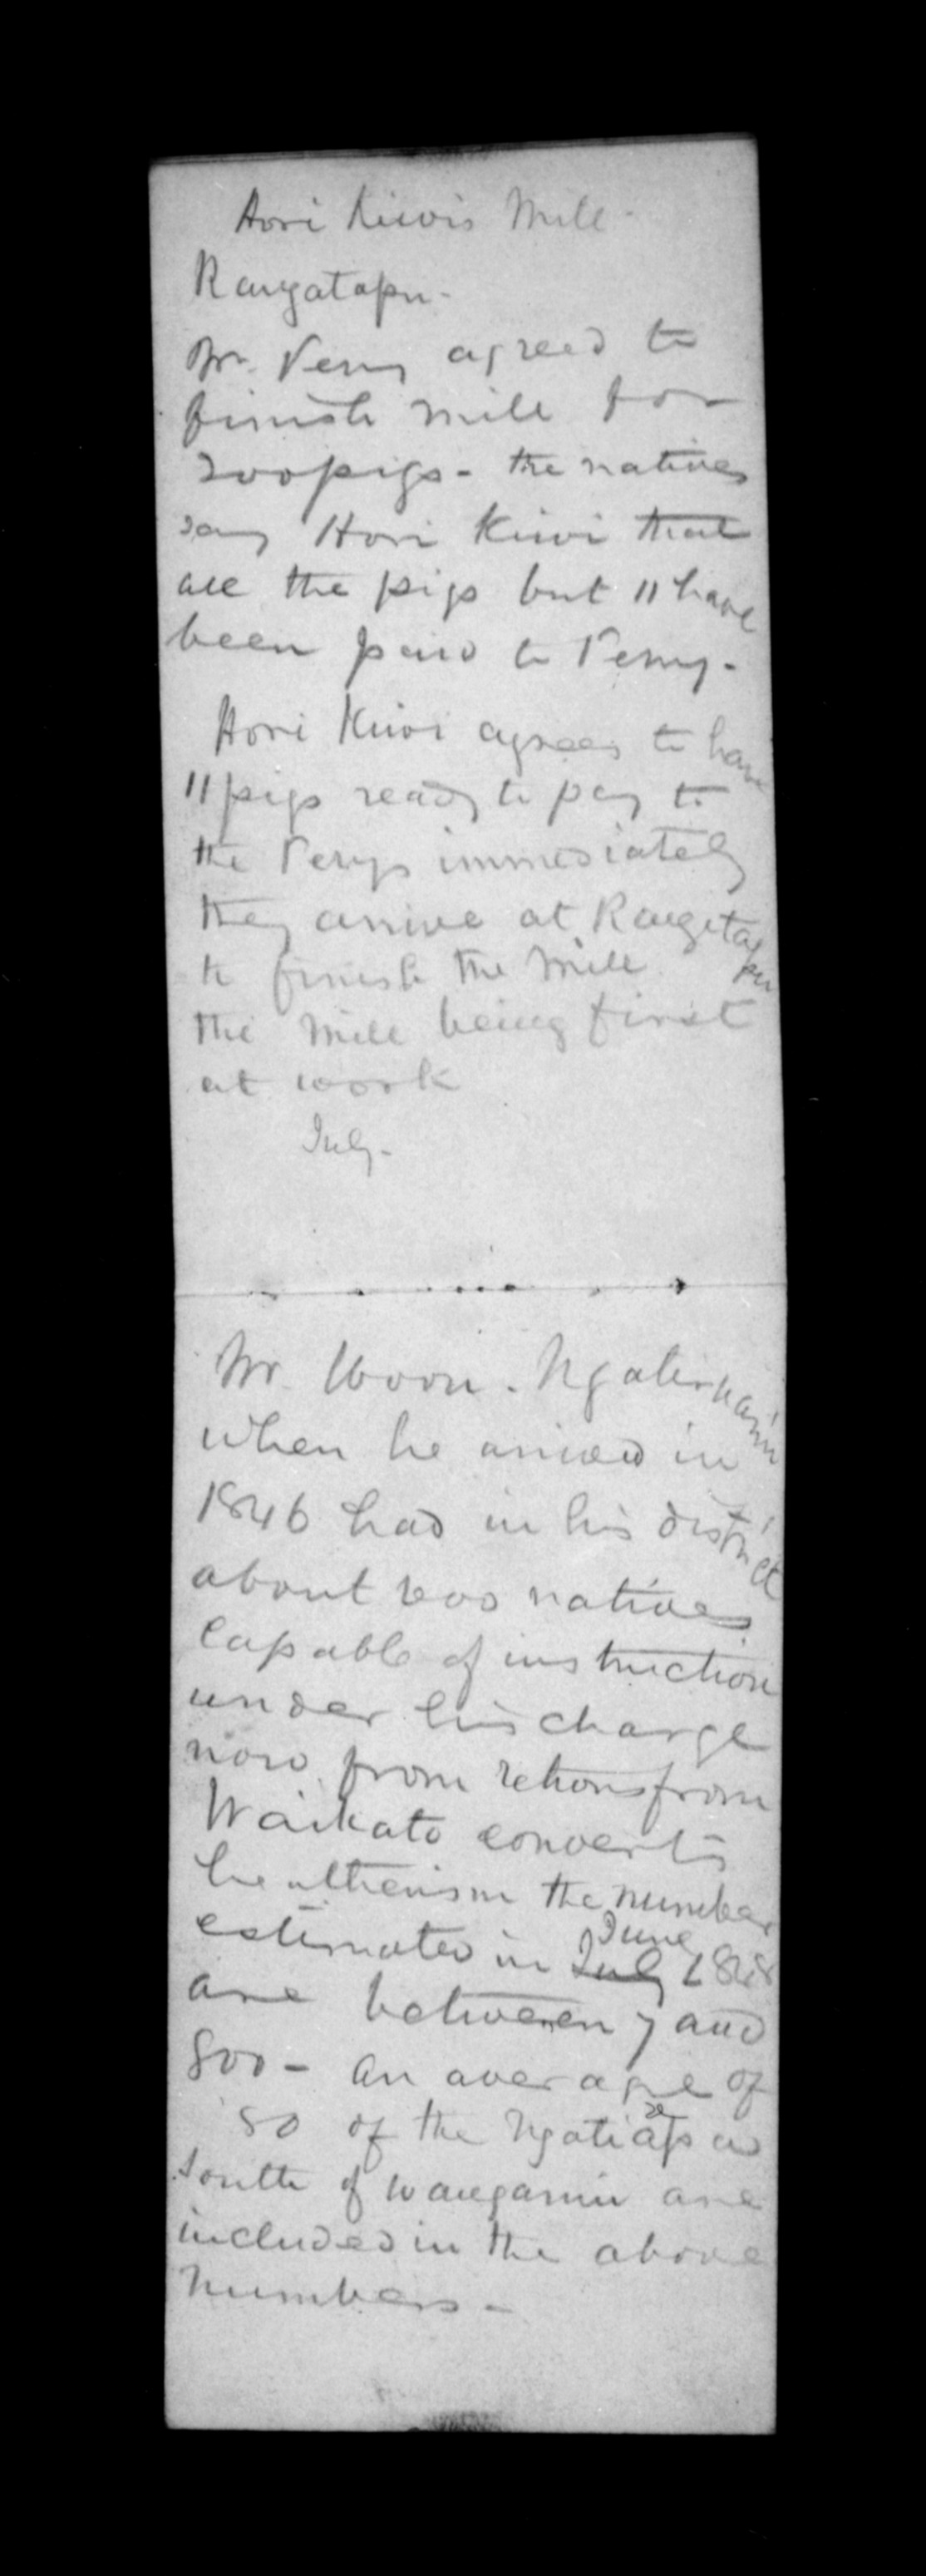 Hori Kiwis Mill -
Rangatapu -
Mr. Perry agreed to
finish mill for
200 pigs - the natives
say Hori Kiwi that
all the pigs but 11 have
been paid to Perry -
Hori Kiwi agrees to have
11 pigs ready to pay to
the Perrys immediately
they arrive at Rangatapu
to finish the Mill
the Mill being first
at work
July -
Mr. Woon. Ngatiruanui
when he arrived in
1846 had in his district
about 2000 natives
capable of instruction
under his charge
now from returns from
Waikato converts
heathenism the number
estimated in July June 1848
are between 7 and
800 - an average of
80 of the Ngatiapa
South of Wanganui are
included in the above
Numbers -